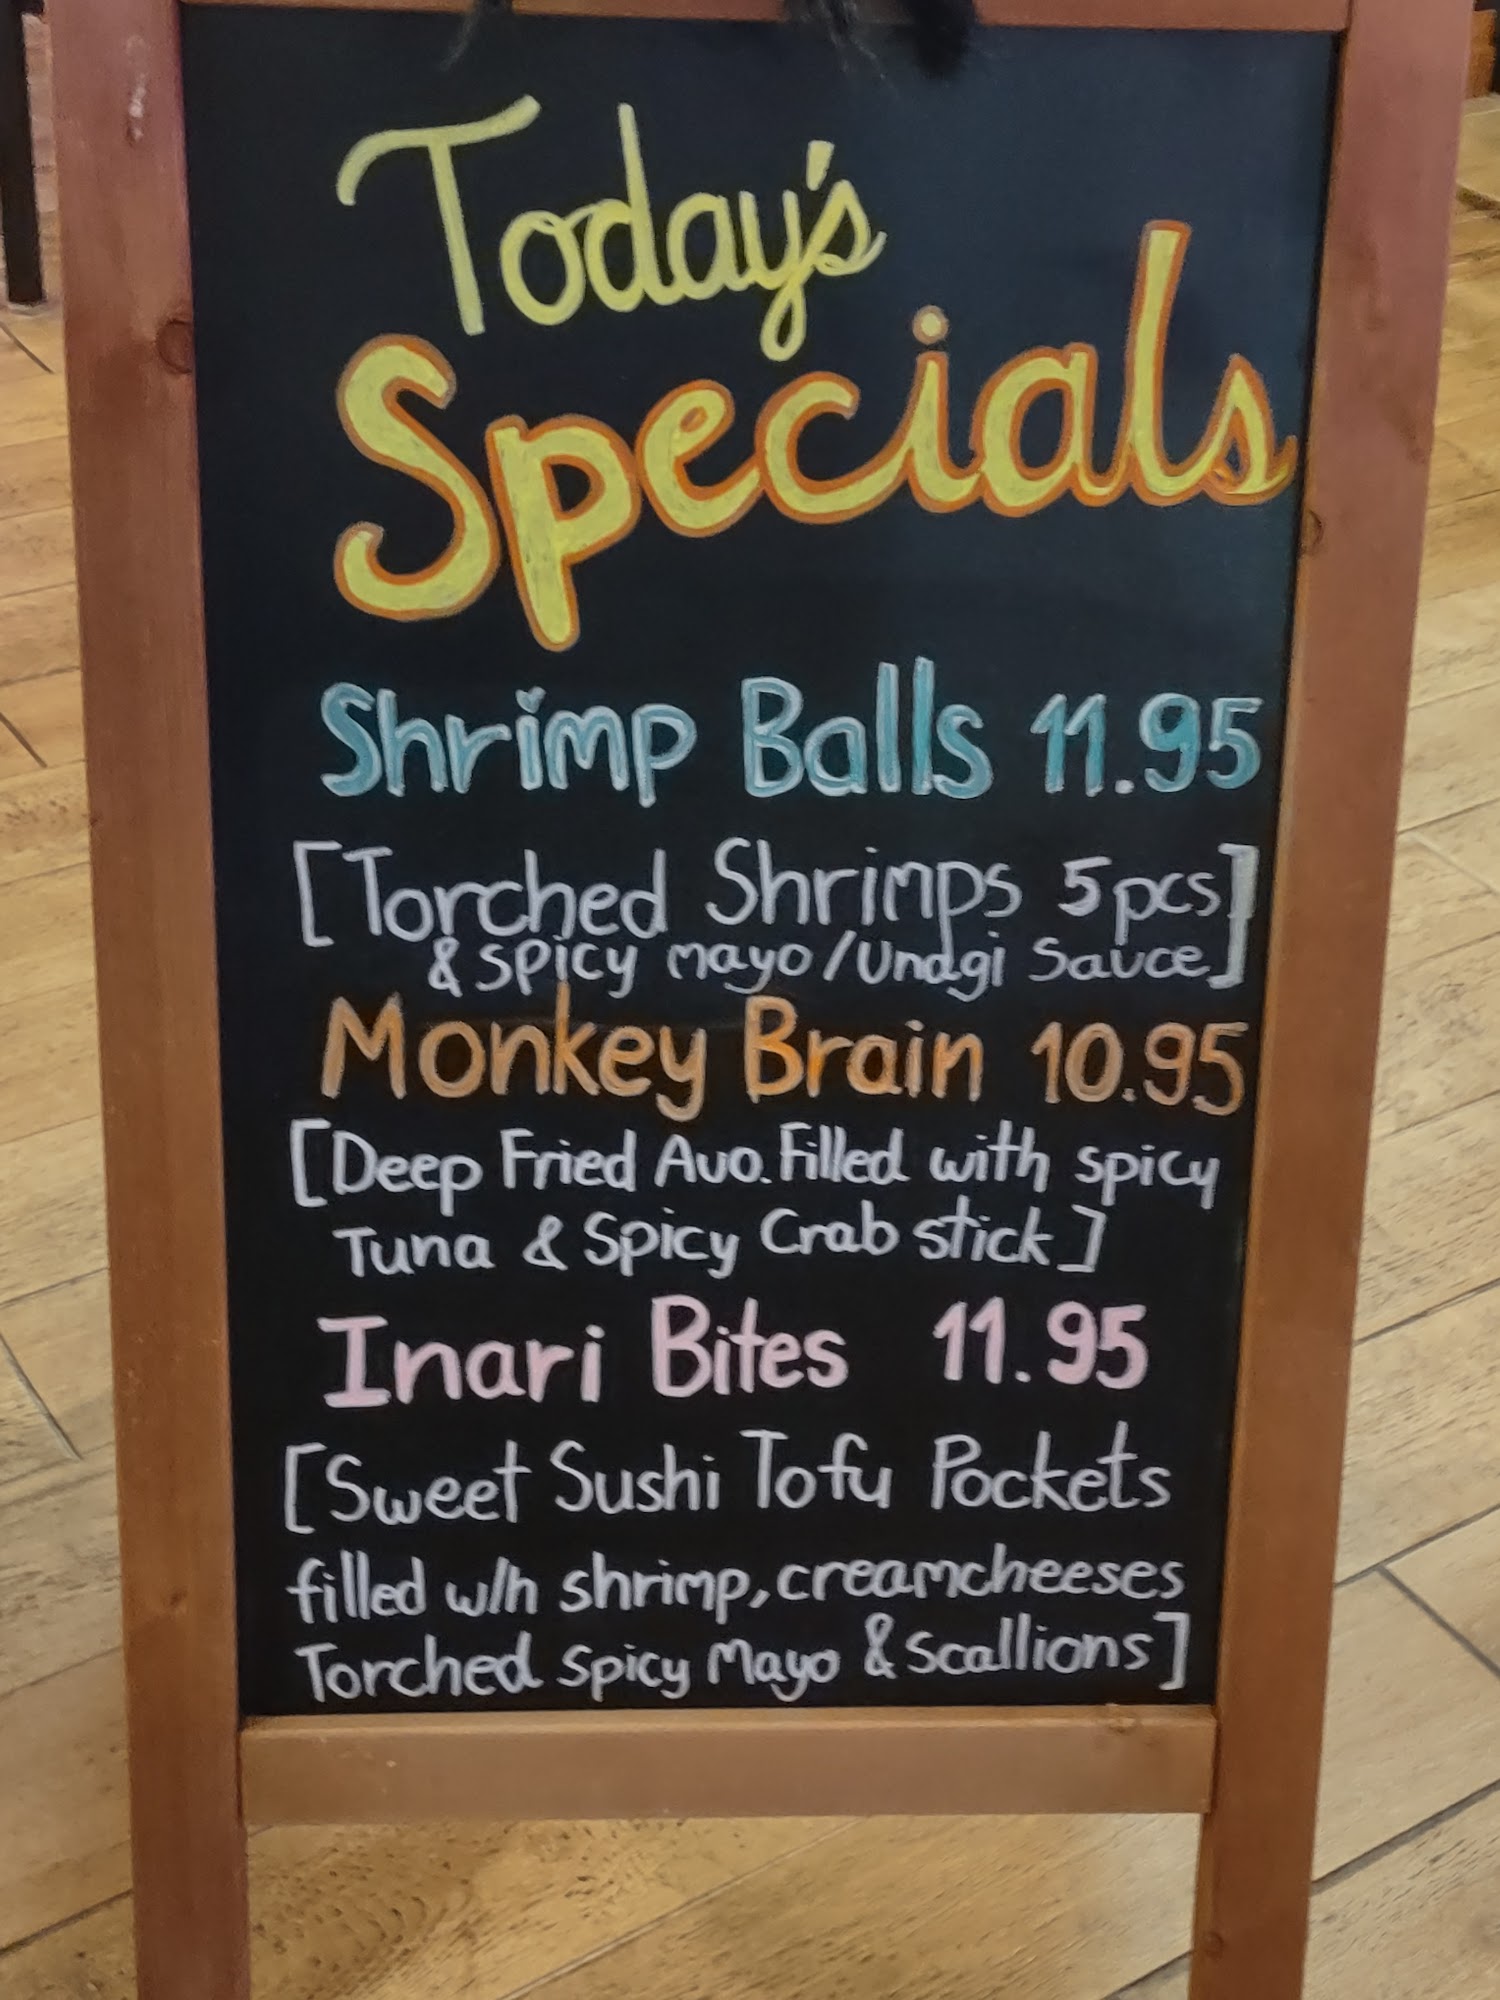 Today's
Specials
Shrimp Balls 11.95
[Torched Shrimps 5pcs]
& spicy mayo/Unagi Sauce]
Monkey Brain 10.95
[Deep Fried Avo. Filled with spicy
Tuna & Spicy Crab stick]
Inari Bites 11.95
[Sweet Sushi Tofu Pockets
filled w/h shrimp, creamcheeses
Torched Spicy Mayo & Scallions]